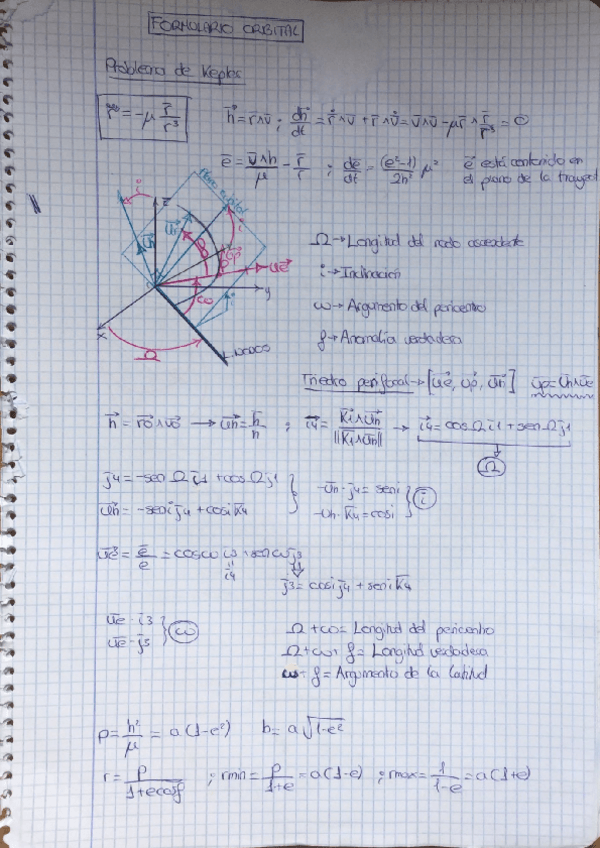 FORMULARIO ORBITAL
Problema de Kepler
r̈ = -μ r̄/r³    h̄ = r̄∧v̄ ; dh̄/dt = ṙ∧v̄ + r̄∧v̇ = v̄∧v̄ - μr̄∧r̄/r³ = 0
ē = v̄∧h̄/μ - r̄/r ; de/dt = (e²-1)/2h² μ²   ē está contenido en
el plano de la trayect
Plano orbital
i
z
uh
ur
f
i
up
ue
ω
i
y
x
Ω
L. nodos
Ω → Longitud del nodo ascendente
i → Inclinación
ω → Argumento del pericentro
f → Anomalía verdadera
Triedro perifocal → [ue, up, uh]   up = uh∧ue
h̄ = r̄0∧v̄0 → uh = h̄/h ; i4 = k1∧uh/||k1∧uh|| → i4 = cosΩ i1 + senΩ j1
Ω
j4 = -senΩ i1 + cosΩ j1
uh = -seni j4 + cosi k4
-uh·j4 = seni
-uh·k4 = cosi
i
ue = ē/e = cosω i3 + senω j3
i4
j3 = cosi j4 + seni k4
ue·i3
ue·j3
ω
Ω+ω = Longitud del pericentro
Ω+ω+f = Longitud verdadera
ω+f = Argumento de la latitud
p = h²/μ = a(1-e²)   b = a√1-e²
r = p/1+ecosf ; rmin = p/1+e = a(1-e) ; rmax = 1/1-e = a(1+e)